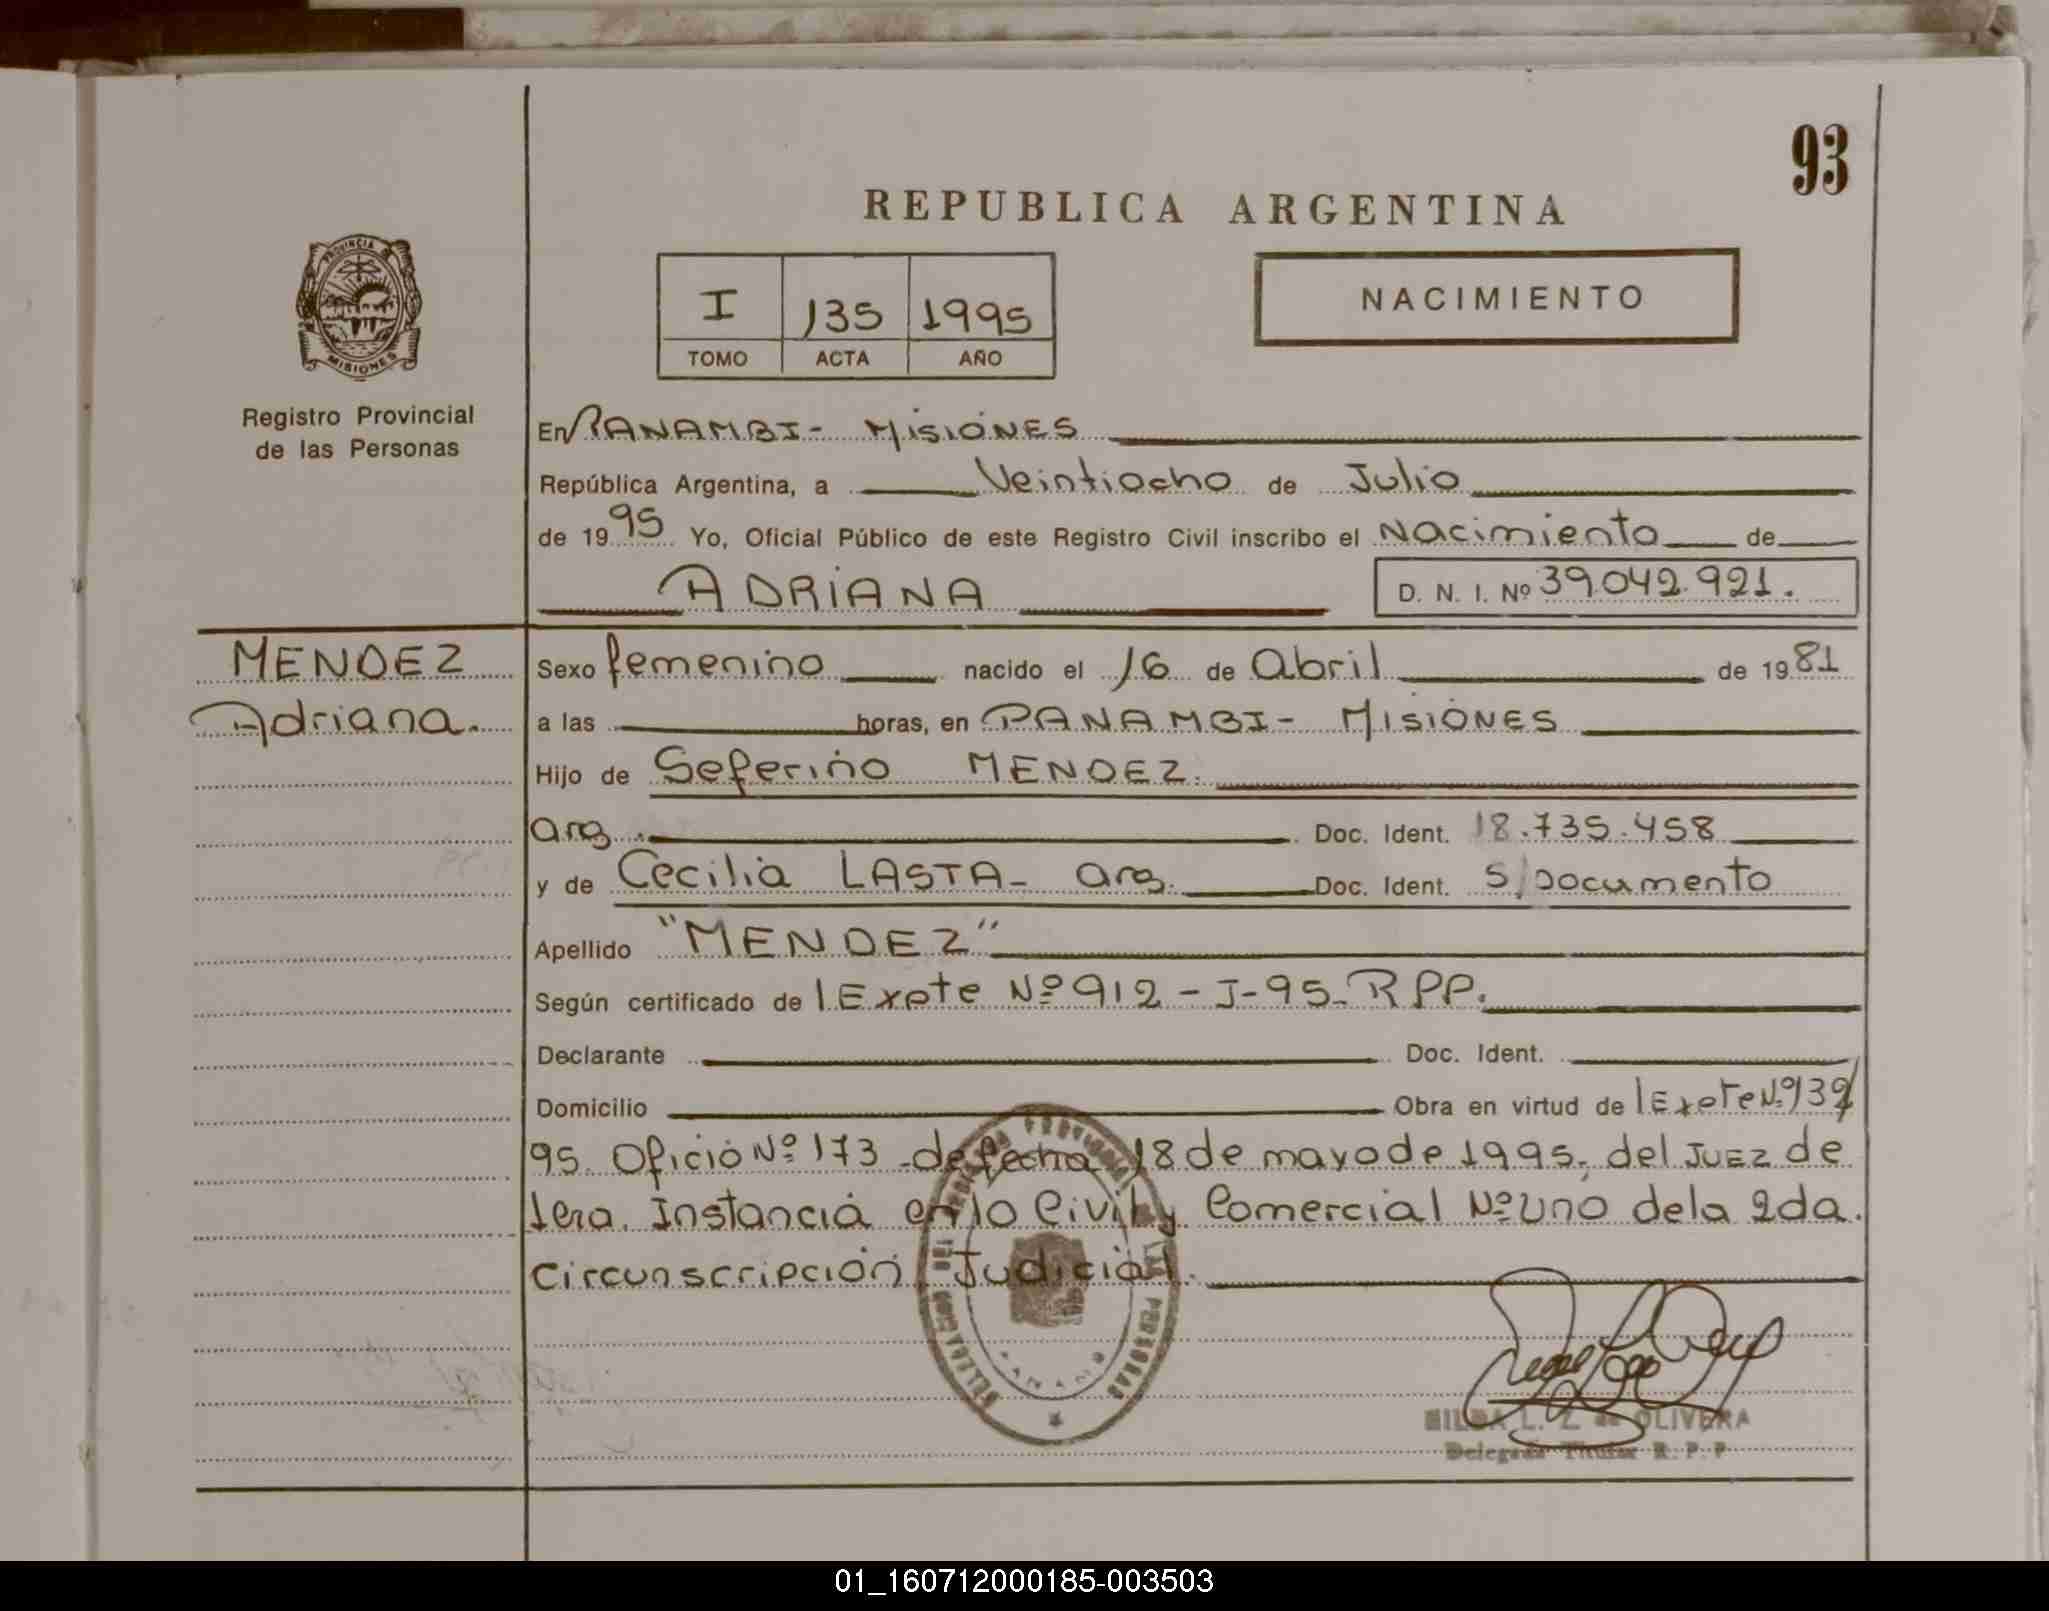 93
REPUBLICA ARGENTINA
PROVINCIA DE
MISIONES
Registro Provincial
de las Personas
I 135 1995
TOMO ACTA AÑO
NACIMIENTO
En PANAMBI - MISIONES
República Argentina, a Veintiocho de Julio
de 1995 Yo, Oficial Público de este Registro Civil inscribo el Nacimiento de
ADRIANA D. N. I. Nº 39.042.921.
MENDEZ
Adriana.
Sexo femenino nacido el 16 de Abril de 1981
a las horas, en PANAMBI - MISIONES
Hijo de Seferino MENDEZ.
arg. Doc. Ident. 18.735.458
y de Cecilia LASTA - arg. Doc. Ident. S/Documento
Apellido "MENDEZ"
Según certificado de l Expte Nº 912 - I - 95 - RPP.
Declarante Doc. Ident.
Domicilio Obra en virtud de l Expte Nº 139/
95 Oficio Nº 173 de fecha 18 de mayo de 1995, del JUEZ de
1era. Instancia en lo Civil y Comercial Nº Uno de la 2da.
Circunscripción Judicial.
HILDA L. Z. de OLIVERA
Delegada Titular R. P. P.
01_160712000185-003503